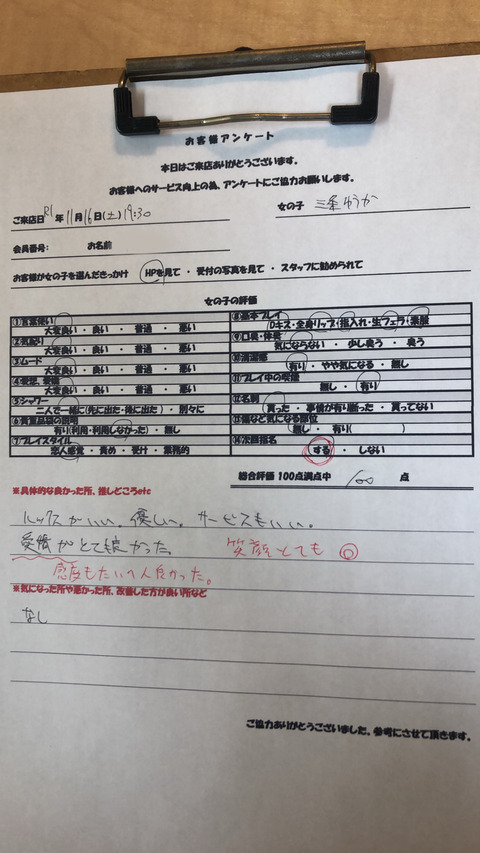 お客様アンケート
本日はご来店ありがとうございます。
お客様へのサービス向上の為、アンケートにご協力お願いします。
ご来店日 R1年 11月 16日(土) 19:30 女の子 三条ゆうか
会員番号: お名前
お客様が女の子を選んだきっかけ HPを見て ・ 受付の写真を見て ・ スタッフに勧められて
女の子の評価
①言葉使い
大変良い ・ 良い ・ 普通 ・ 悪い
②気配り
大変良い ・ 良い ・ 普通 ・ 悪い
③ムード
大変良い ・ 良い ・ 普通 ・ 悪い
大変良い ・ 良い ・ 普通 ・ 悪い
⑤シャワー
二人で一緒に(先に出た・後に出た) ・ 別々に
の説明
有り(利用・利用しなかった) ・ 無し
⑦プレイスタイル
恋人感覚 ・ 責め ・ 受け ・ 業務的
⑧基本プレイ
Dキス・全身リップ・指入れ・生フェラ・素股
⑨口臭・体臭
気にならない ・ 少し臭う ・ 臭う
⑩清潔感
有り ・ やや気になる ・ 無し
⑪プレイ中の
無し ・ 有り
⑫名刺
貰った ・ 事情が有り断った ・ 貰ってない
⑬傷など気になる部位
無し ・ 有り( )
⑭次回指名
する ・ しない
総合評価 100点満点中 100 点
※具体的な良かった所、推しどころetc
ルックスがいい。優しい。サービスもいい。
愛情がとて良かった。 笑顔とても◎
感度もたいへん良かった。
※気になった所や悪かった所、改善した方が良い所など
なし
ご協力ありがとうございました。参考にさせて頂きます。